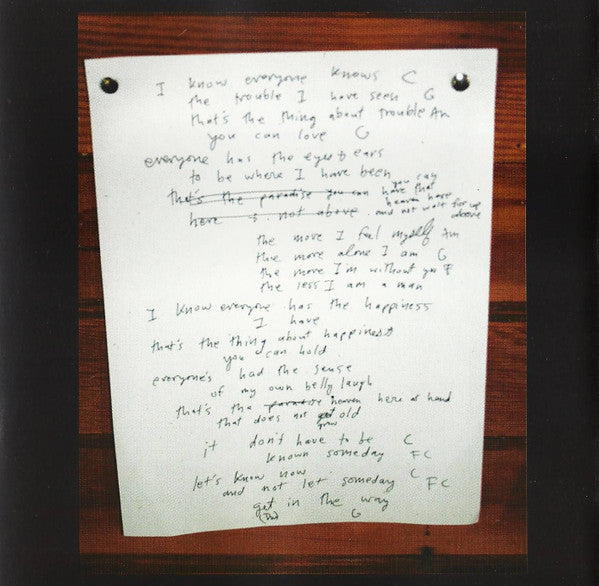 I know everyone knows C
the trouble I have seen G
that's the thing about trouble Am
you can love G
everyone has the eyes & ears
to be where I have been
that's the paradise you can have that
you say
heaven here
here is not above and not wait for up
above
the more I feel myself Am
the more alone I am G
the more I'm without you F
the less I am a man
I know everyone has the happiness
I have
that's the thing about happiness
you can hold
everyone's had the sense
of my own belly laugh
that's the paradise heaven here at hand
that does not get old
grow
it don't have to be C
known someday FC
let's know now C
and not let someday FC
get in the way
G